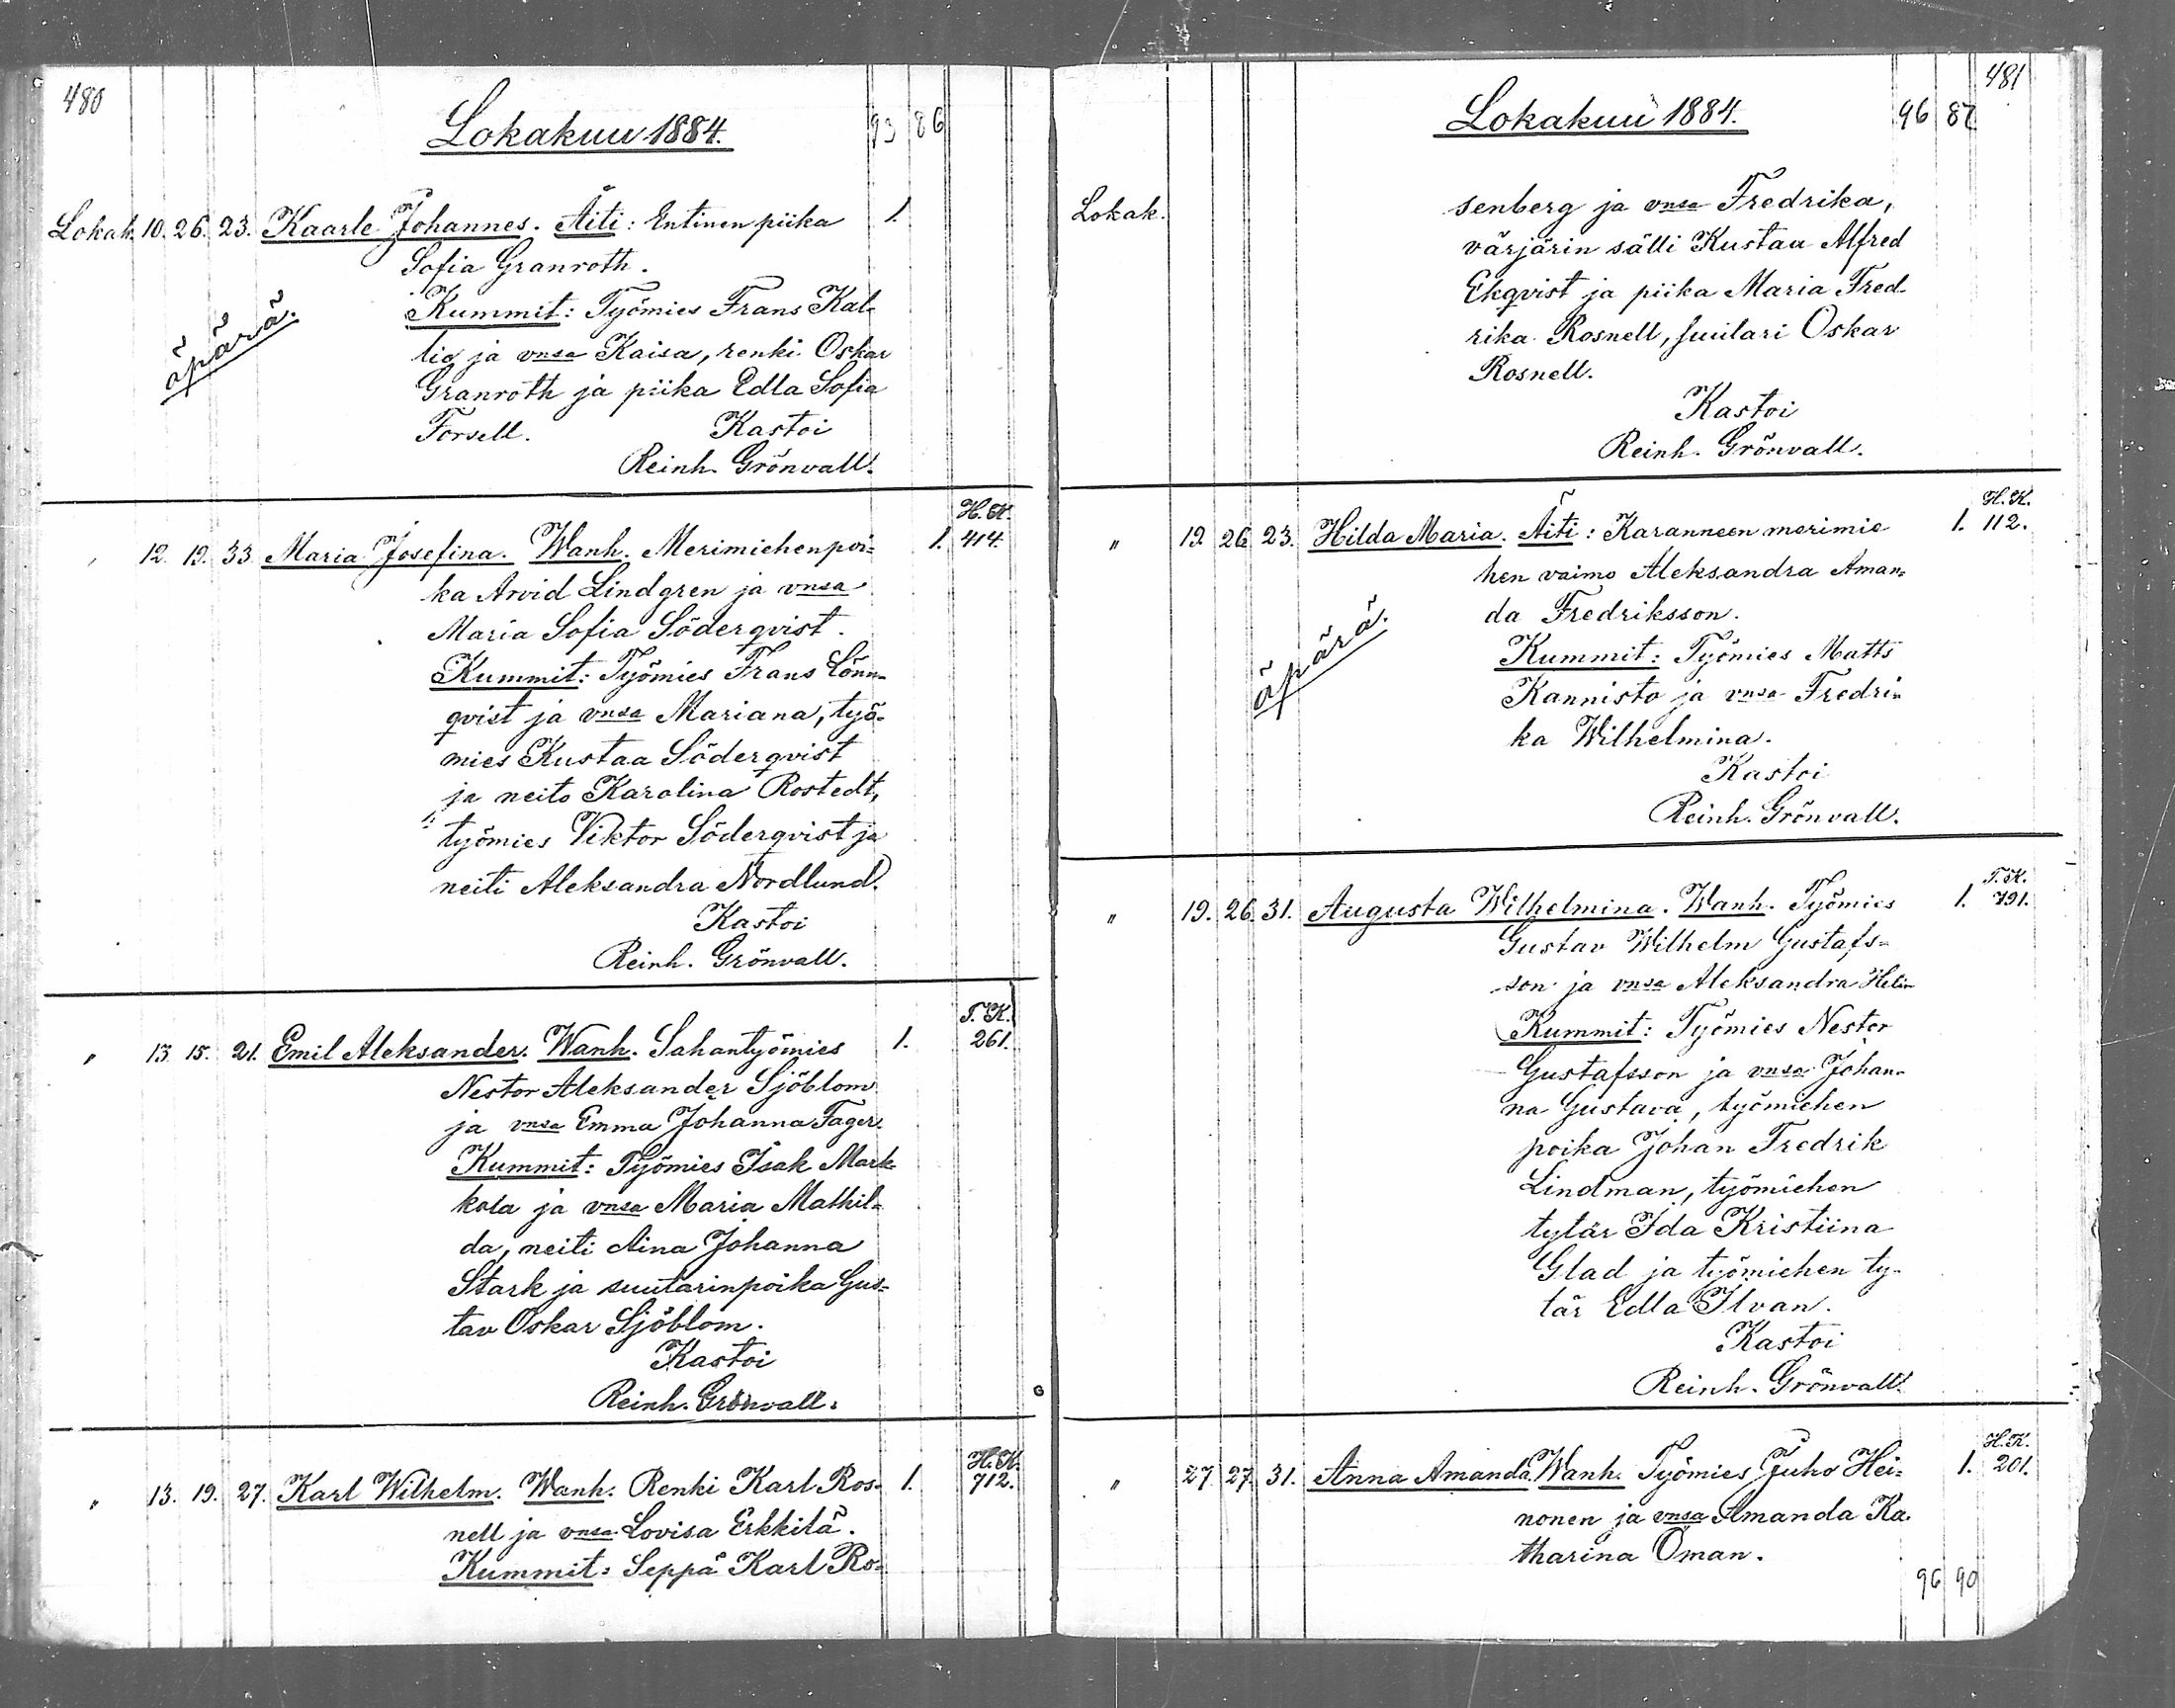 480
Lokakuu 1884. 93 86
Lokak. 10. 26. 23. Kaarle Johannes. Äiti: Entinen piika 1.
Sofia Granroth.
Kummit: Työmies Frans Kal-
lio ja vnsa Kaisa, renki Oskar
äpärä.
Granroth ja piika Edla Sofia
Forsell. Kastoi
Reinh. Grönvall.
H. K.
" 12. 19. 33. Maria Josefina. Wanh. Merimiehenpoi= 1. 414.
ka Arvid Lindgren ja vnsa
Maria Sofia Söderqvist.
Kummit: Työmies Frans Lönn-
qvist ja vnsa Mariana, työ-
mies Kustaa Söderqvist
ja neito Karolina Rostedt,
työmies Viktor Söderqvist ja
neiti Aleksandra Nordlund.
Kastoi
Reinh. Grönvall.
T. K.
" 13. 15. 21. Emil Aleksander. Wanh. Sahantyömies 1. 261.
Nestor Aleksander Sjöblom
ja vnsa Emma Johanna Fager.
Kummit: Työmies Isak Mark-
kola ja vnsa Maria Mathil-
da, neiti Aina Johanna
Stark ja suutarinpoika Gus=
tav Oskar Sjöblom.
Kastoi
Reinh. Grönvall.
H. K.
" 13. 19. 27. Karl Wilhelm. Wanh. Renki Karl Ros- 1. 712.
nell ja vnsa Lovisa Erkkilä.
Kummit: Seppä Karl Ro-
481
Lokakuu 1884. 96 87
Lokak. senberg ja vnsa Fredrika,
värjärin sälli Kustaa Alfred
Ekqvist ja piika Maria Fred-
rika Rosnell, suutari Oskar
Rosnell.
Kastoi
Reinh. Grönvall.
H. K.
" 19 26 23. Hilda Maria. Äiti: Karanneen merimie 1. 112.
hen vaimo Aleksandra Aman=
da Fredriksson.
äpärä.
Kummit: Työmies Matts
Kannisto ja vnsa Fredri-
ka Wilhelmina.
Kastoi
Reinh. Grönvall.
T. K.
" 19. 26. 31. Augusta Wilhelmina. Wanh. Työmies 1. 791.
Gustav Wilhelm Gustafs=
son ja vnsa Aleksandra Helin
Kummit: Työmies Nestor
Gustafsson ja vnsa Johan-
na Gustava, työmiehen
poika Johan Fredrik
Lindman, työmiehen
tytär Ida Kristiina
Glad ja työmiehen ty-
tär Edla Ilvan.
Kastoi
Reinh. Grönvall.
H. K.
" 27 27. 31. Anna Amanda. Wanh. Työmies Juho Hei= 1. 201.
nonen ja vnsa Amanda Ka-
tharina Öman.
96 90